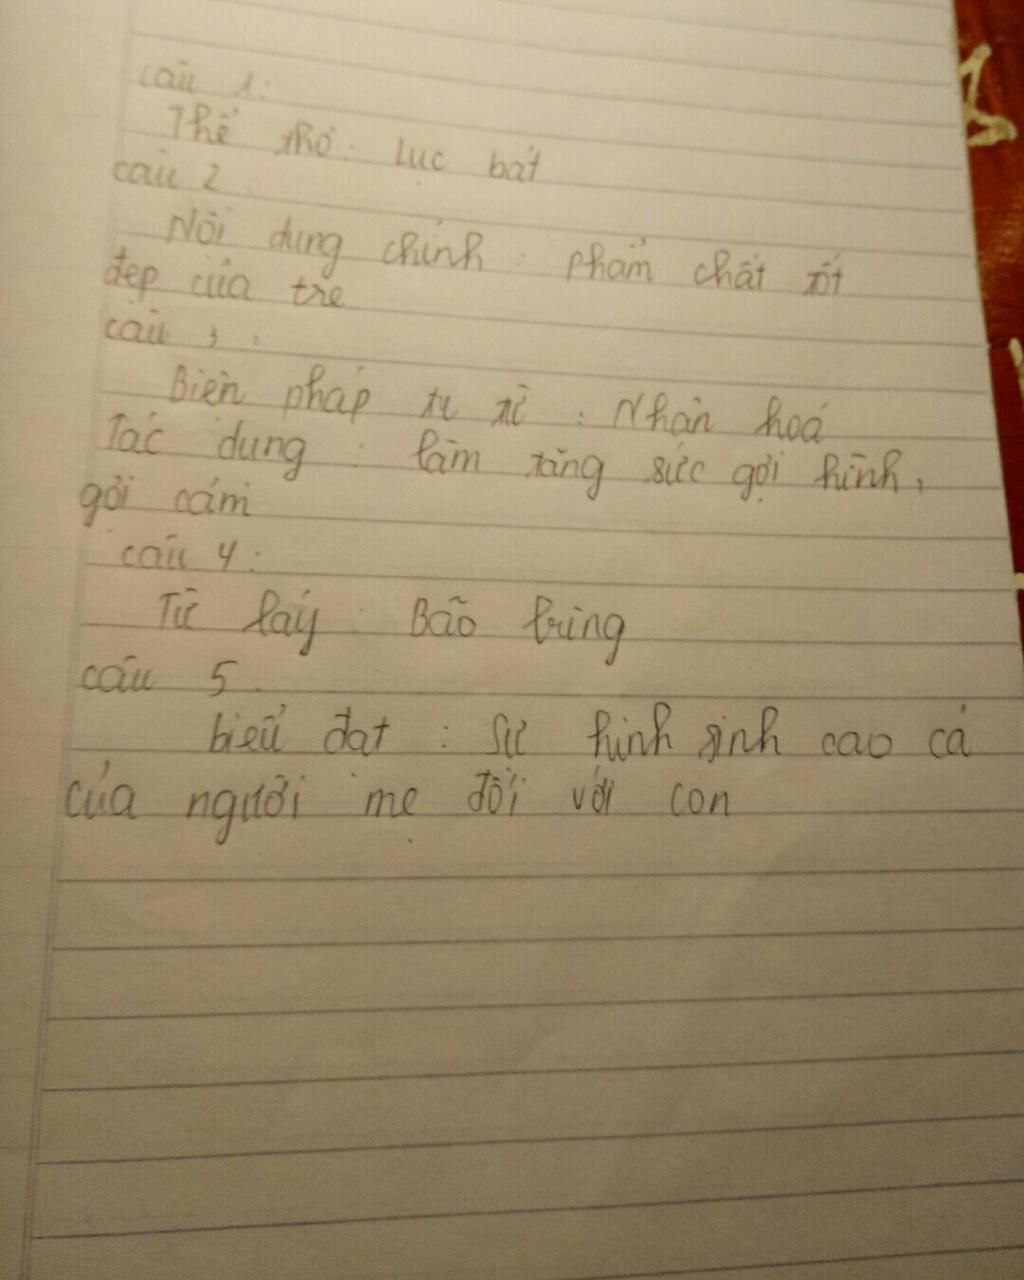 câu 1:
Thể thơ: Lục bát
câu 2
Nội dung chính: phẩm chất tốt
đẹp của tre
câu 3:
Biện pháp tu từ: Nhân hoá
Tác dụng: làm tăng sức gợi hình,
gợi cảm
câu 4:
Từ láy: Bão bùng
câu 5
biểu đạt: sự hinh sinh cao cả
của người mẹ đối với con